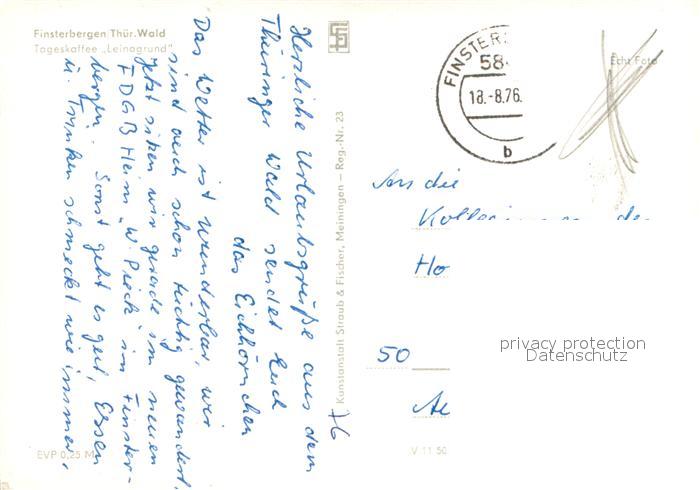 Finsterbergen/Thür.Wald
Tageskaffee „Leinagrund"
Herzliche Urlaubsgrüße aus dem
Thüringer Wald sendet Euch
das Eichhörnchen
Das Wetter ist wunderbar, wir
sind auch schon tüchtig gewandert.
Jetzt sitzen wir gerade im neuen
FDGB Heim „W. Pieck" in Finster-
bergen. Sonst geht es gut, Essen
u. Trinken schmeckt wie immer.
EVP 0,25 M
Kunstanstalt Straub & Fischer, Meiningen – Reg.-Nr. 23
76
V 11 50
Echt Foto
FINSTER
58
18.-8.76
b
An die
Ho
50
privacy protection
Datenschutz